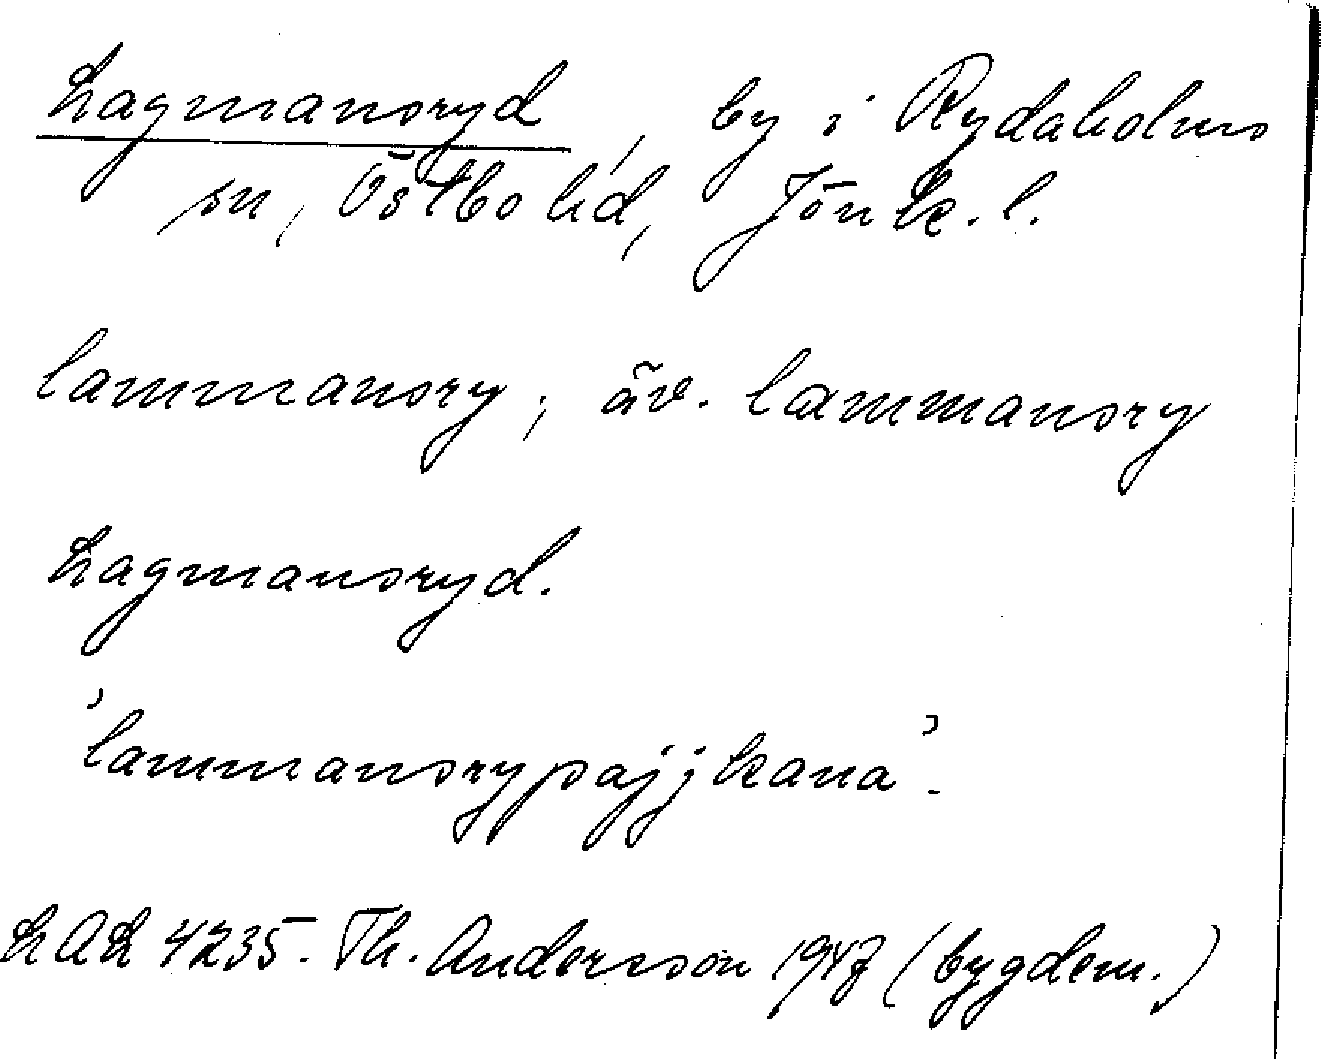 Lagmansryd, by i Rydaholms
sn, Östbo hd, Jönk. l.
lammansry, äv. lammansry
Lagmansryd.
'lammansrypajjkana'.
LAL 4235. Th. Andersson 1947 (bygdem.)